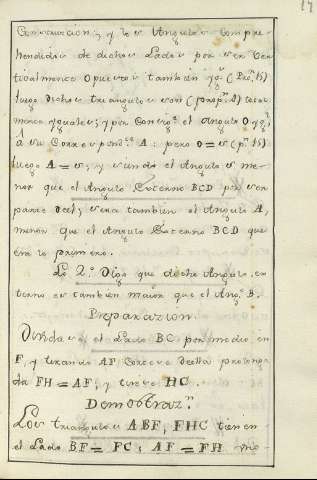 17
Construccion; y los Angulos compre-
hendidos de dichos Lados por ser ver
ticalmente opuestos tambien ygs (Pro. 15)
luego dichos triangulos son (prop. 4) total
mente yguales; y por conseqe. el Angulo O ygl.
à su Correspondte. A: pero O = S (pr. 15)
luego A = S; y siendo el Angulo S me-
nor que el Angulo Externo BCD por ser
parte del; sera tambien el Angulo A,
menor que el Angulo Externo BCD que
era lo primero.
Lo 2.º Digo que dicho Angulo ex
terno es tambien maior que el Angº. B.
Preparazion.
Dividase el Lado BC por medio en
F, y tirando AF Correse della prolonga
da FH = AF, y tirese HC.
Demostraz.n
Los triangulos ABF, FHC tienen
el Lado BF = FC; AF = FH